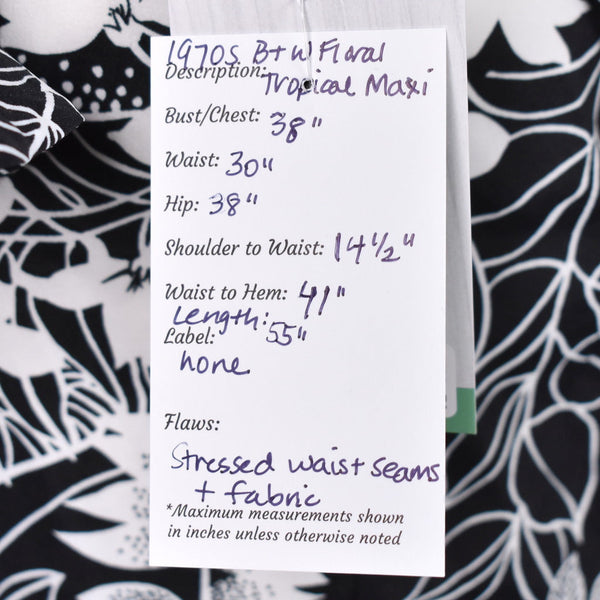 1970s B+W Floral
Description: Tropical Maxi
Bust/Chest: 38"
Waist: 30"
Hip: 38"
Shoulder to Waist: 14 1/2"
Waist to Hem: 41"
Length: 55"
Label:
none
Flaws:
Stressed waist seams
+ fabric
*Maximum measurements shown
in inches unless otherwise noted